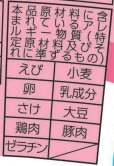 本品原材料に含
まれるアレ
ルギー物質(特定
原材料及びそ
れに準ずるもの)
えび 小麦
卵 乳成分
さけ 大豆
鶏肉 豚肉
ゼラチン